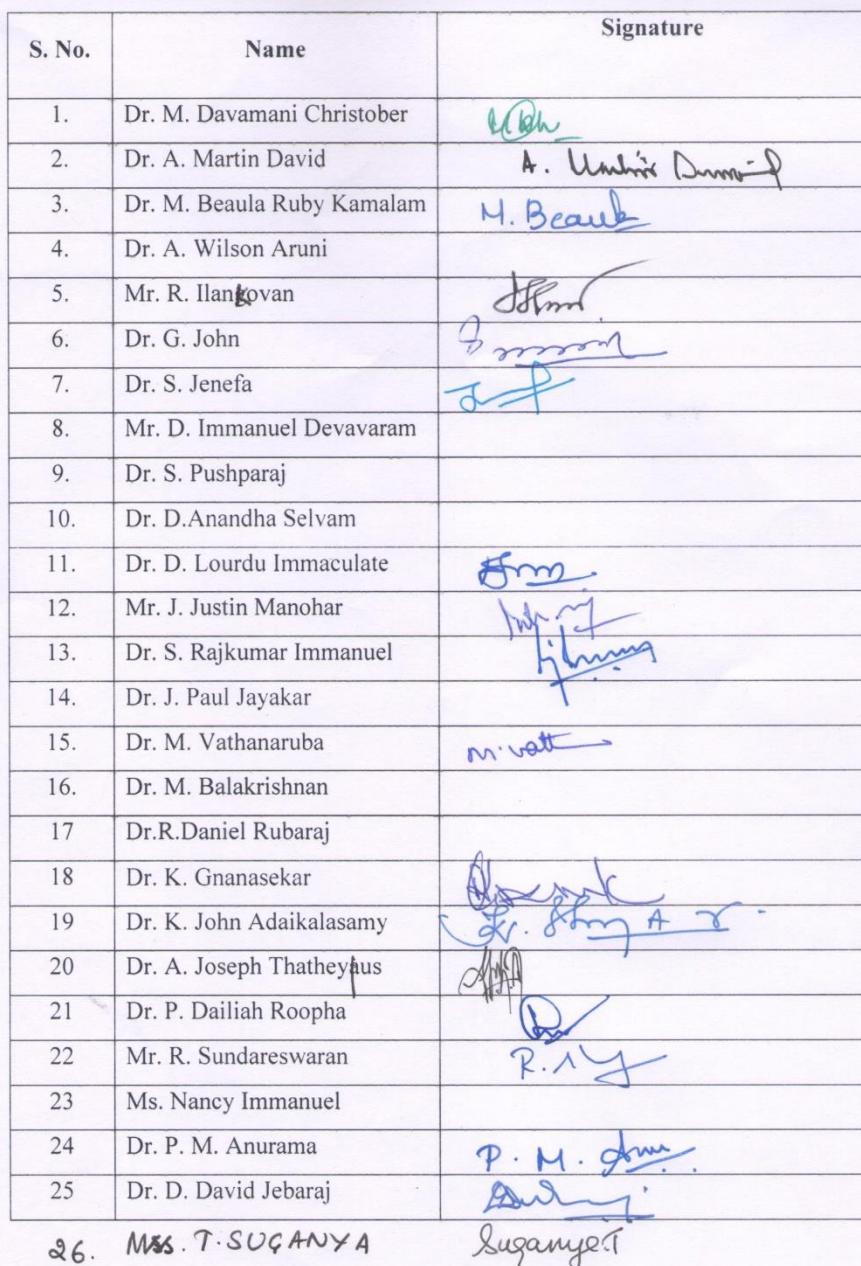 S. No. Name Signature
1. Dr. M. Davamani Christober
2. Dr. A. Martin David A.
3. Dr. M. Beaula Ruby Kamalam M. Beaula
4. Dr. A. Wilson Aruni
5. Mr. R. Ilankovan
6. Dr. G. John
7. Dr. S. Jenefa
8. Mr. D. Immanuel Devavaram
9. Dr. S. Pushparaj
10. Dr. D.Anandha Selvam
11. Dr. D. Lourdu Immaculate
12. Mr. J. Justin Manohar
13. Dr. S. Rajkumar Immanuel
14. Dr. J. Paul Jayakar
15. Dr. M. Vathanaruba M. Vatt
16. Dr. M. Balakrishnan
17 Dr.R.Daniel Rubaraj
18 Dr. K. Gnanasekar
19 Dr. K. John Adaikalasamy
20 Dr. A. Joseph Thatheyus
21 Dr. P. Dailiah Roopha
22 Mr. R. Sundareswaran R.
23 Ms. Nancy Immanuel
24 Dr. P. M. Anurama P. M. Anu
25 Dr. D. David Jebaraj
26. Mrs. T. SUGANYA Suganya.T